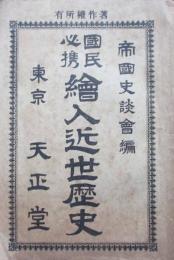 有所權作著
帝國史談會編
國民必携
繪入近世歷史
東京 天正堂